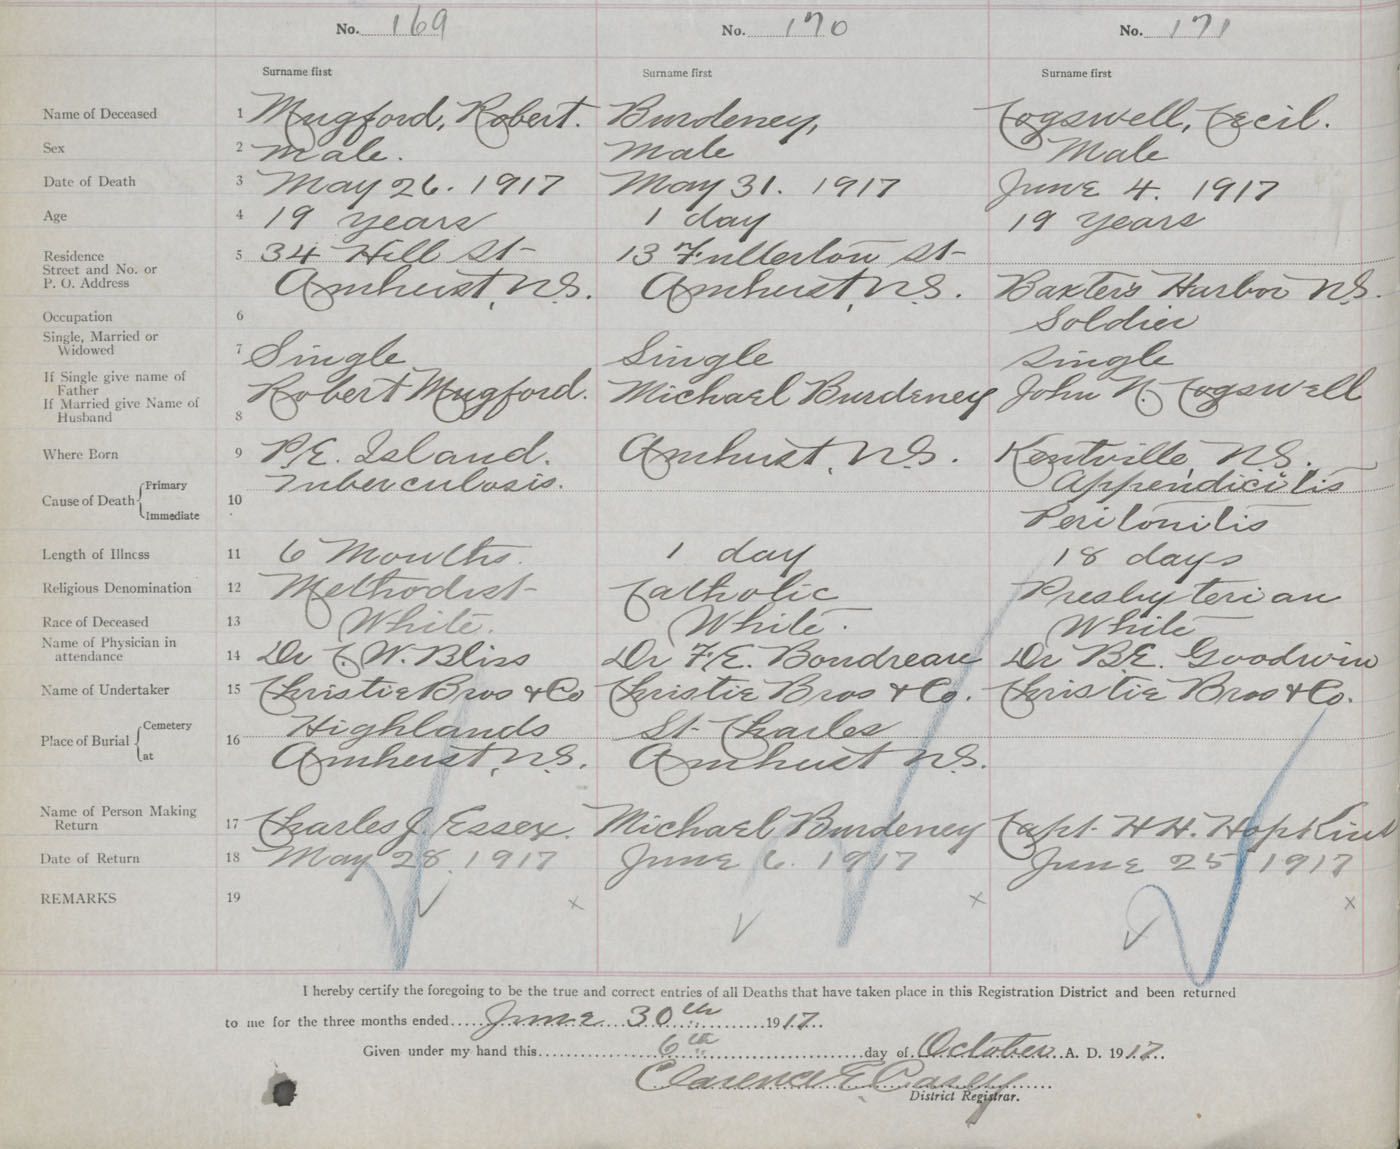 No. 169 No. 170 No. 171
Surname first Surname first Surname first
Name of Deceased 1 Mugford, Robert. Burdeney, Cogswell, Cecil.
Sex 2 Male. Male Male
Date of Death 3 May 26. 1917 May 31. 1917 June 4. 1917
Age 4 19 years 1 day 19 Years
Residence 5 34 Hill St 13 Fullerton St
Street and No. or
P. O. Address Amherst, N.S. Amherst, N.S. Baxter's Harbor N.S.
Occupation 6 Soldier
Single, Married or
Widowed 7 Single Single Single
If Single give name of
Father Robert Mugford. Michael Burdeney John N. Cogswell
If Married give Name of
Husband 8
Where Born 9 P.E. Island. Amherst, N.S. Kentville, N.S.
Cause of Death Primary 10 Tuberculosis. Appendicitis
Immediate Peritonitis
Length of Illness 11 6 Months. 1 day 18 days
Religious Denomination 12 Methodist Catholic Presbyterian
Race of Deceased 13 White. White. White
Name of Physician in
attendance 14 Dr C. W. Bliss Dr F. E. Boudreau Dr B.E. Goodwin
Name of Undertaker 15 Christie Bros & Co Christie Bros & Co. Christie Bros & Co.
Place of Burial Cemetery 16 Highlands St Charles
at Amherst, N.S. Amherst N.S.
Name of Person Making
Return 17 Charles J. Essex. Michael Burdeney Capt. H H. Hopkins
Date of Return 18 May 28. 1917 June 6. 1917 June 25 1917
REMARKS 19 x x x
I hereby certify the foregoing to be the true and correct entries of all Deaths that have taken place in this Registration District and been returned
to me for the three months ended June 30th 1917.
Given under my hand this 6th day of October A. D. 1917
Clarence E. Casey
District Registrar.